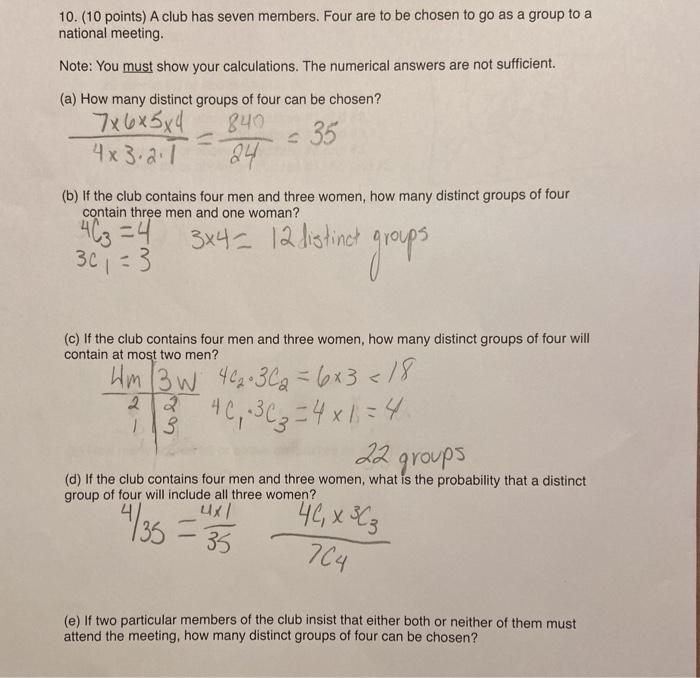 10. (10 points) A club has seven members. Four are to be chosen to go as a group to a
national meeting.
Note: You must show your calculations. The numerical answers are not sufficient.
(a) How many distinct groups of four can be chosen?
7x6x5x4 / 4x3·2·1 = 840 / 24 = 35
(b) If the club contains four men and three women, how many distinct groups of four
contain three men and one woman?
4C3 = 4 3x4= 12 distinct groups
3C1 = 3
(c) If the club contains four men and three women, how many distinct groups of four will
contain at most two men?
4m 3W 4C2·3C2 = 6x3 = 18
2 2 4C1·3C3 = 4x1 = 4
1 3
22 groups
(d) If the club contains four men and three women, what is the probability that a distinct
group of four will include all three women?
4/35 = 4x1 / 35 4C1 x 3C3 / 7C4
(e) If two particular members of the club insist that either both or neither of them must
attend the meeting, how many distinct groups of four can be chosen?